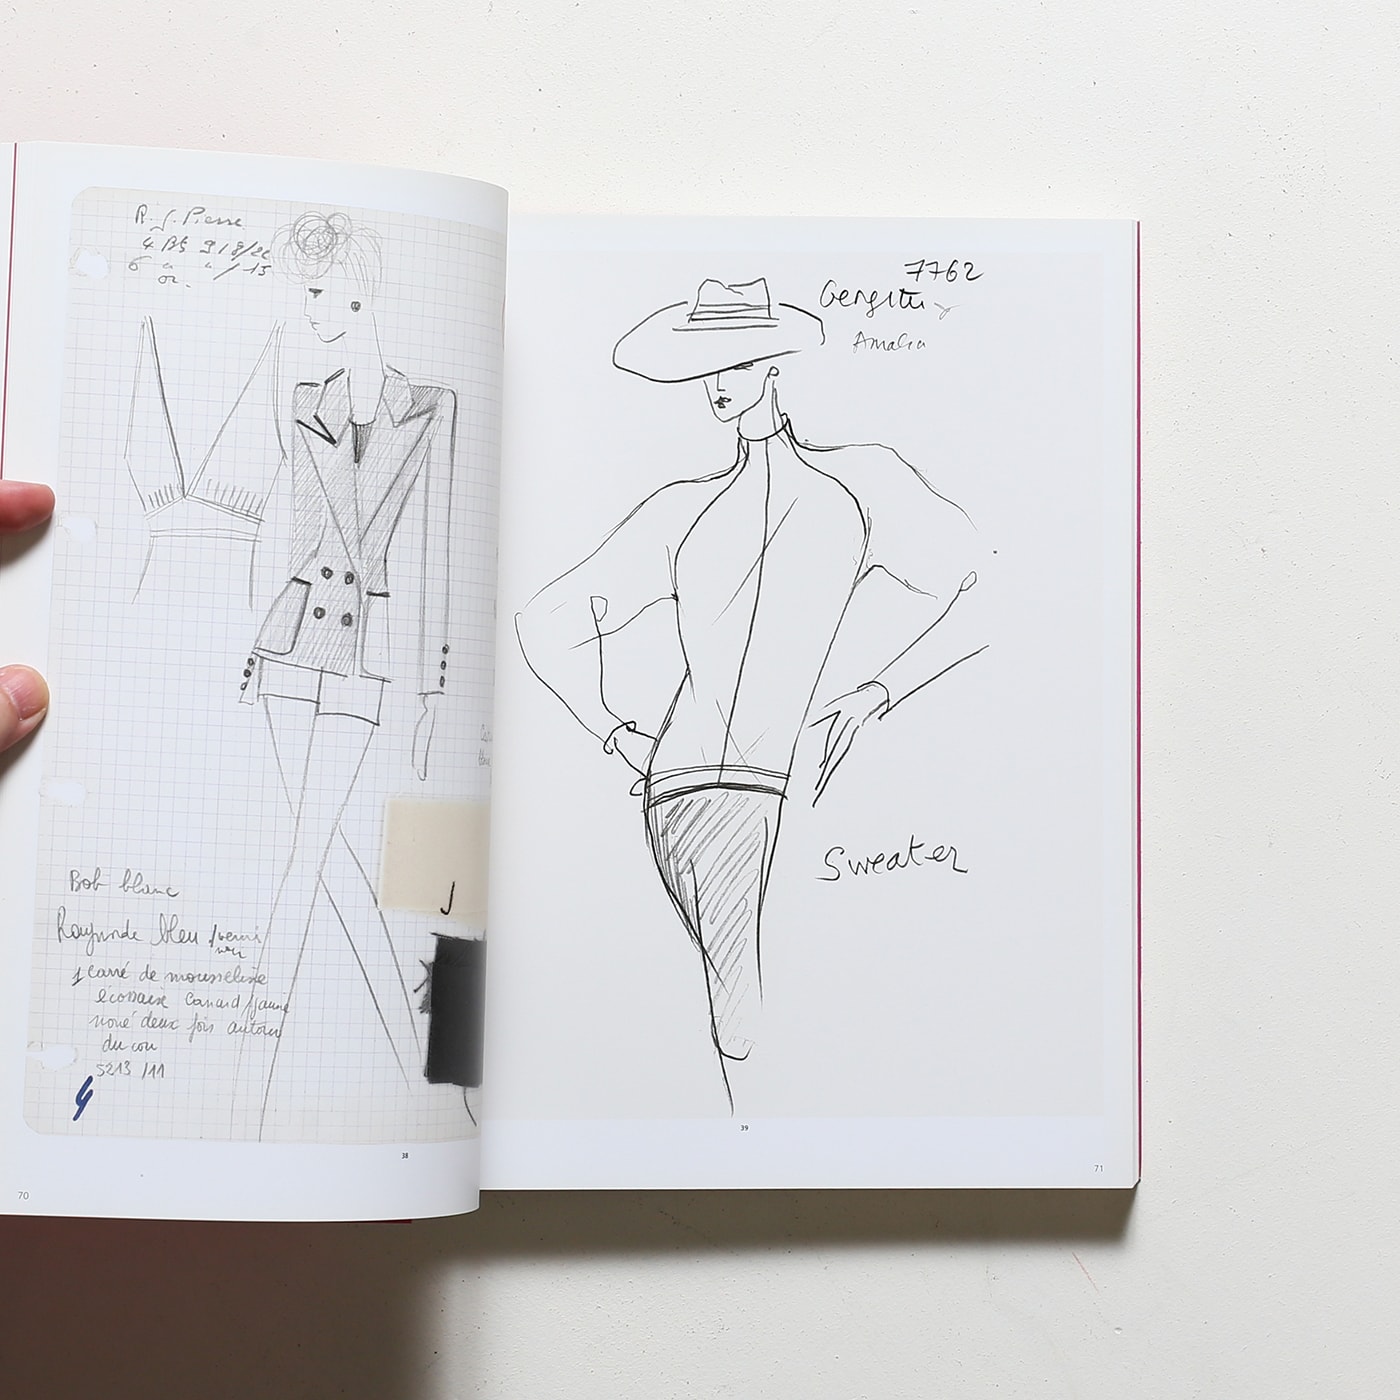 R. J. Pierre
4 Bts 9/8/22
6 " " / 15
or.
Bob blanc
bleu
1 carré de mousseline
écossaise canard/jaune
noué deux fois autour
du cou
5213 /11
4
38
70
7762
Amalia
Sweater
39
71